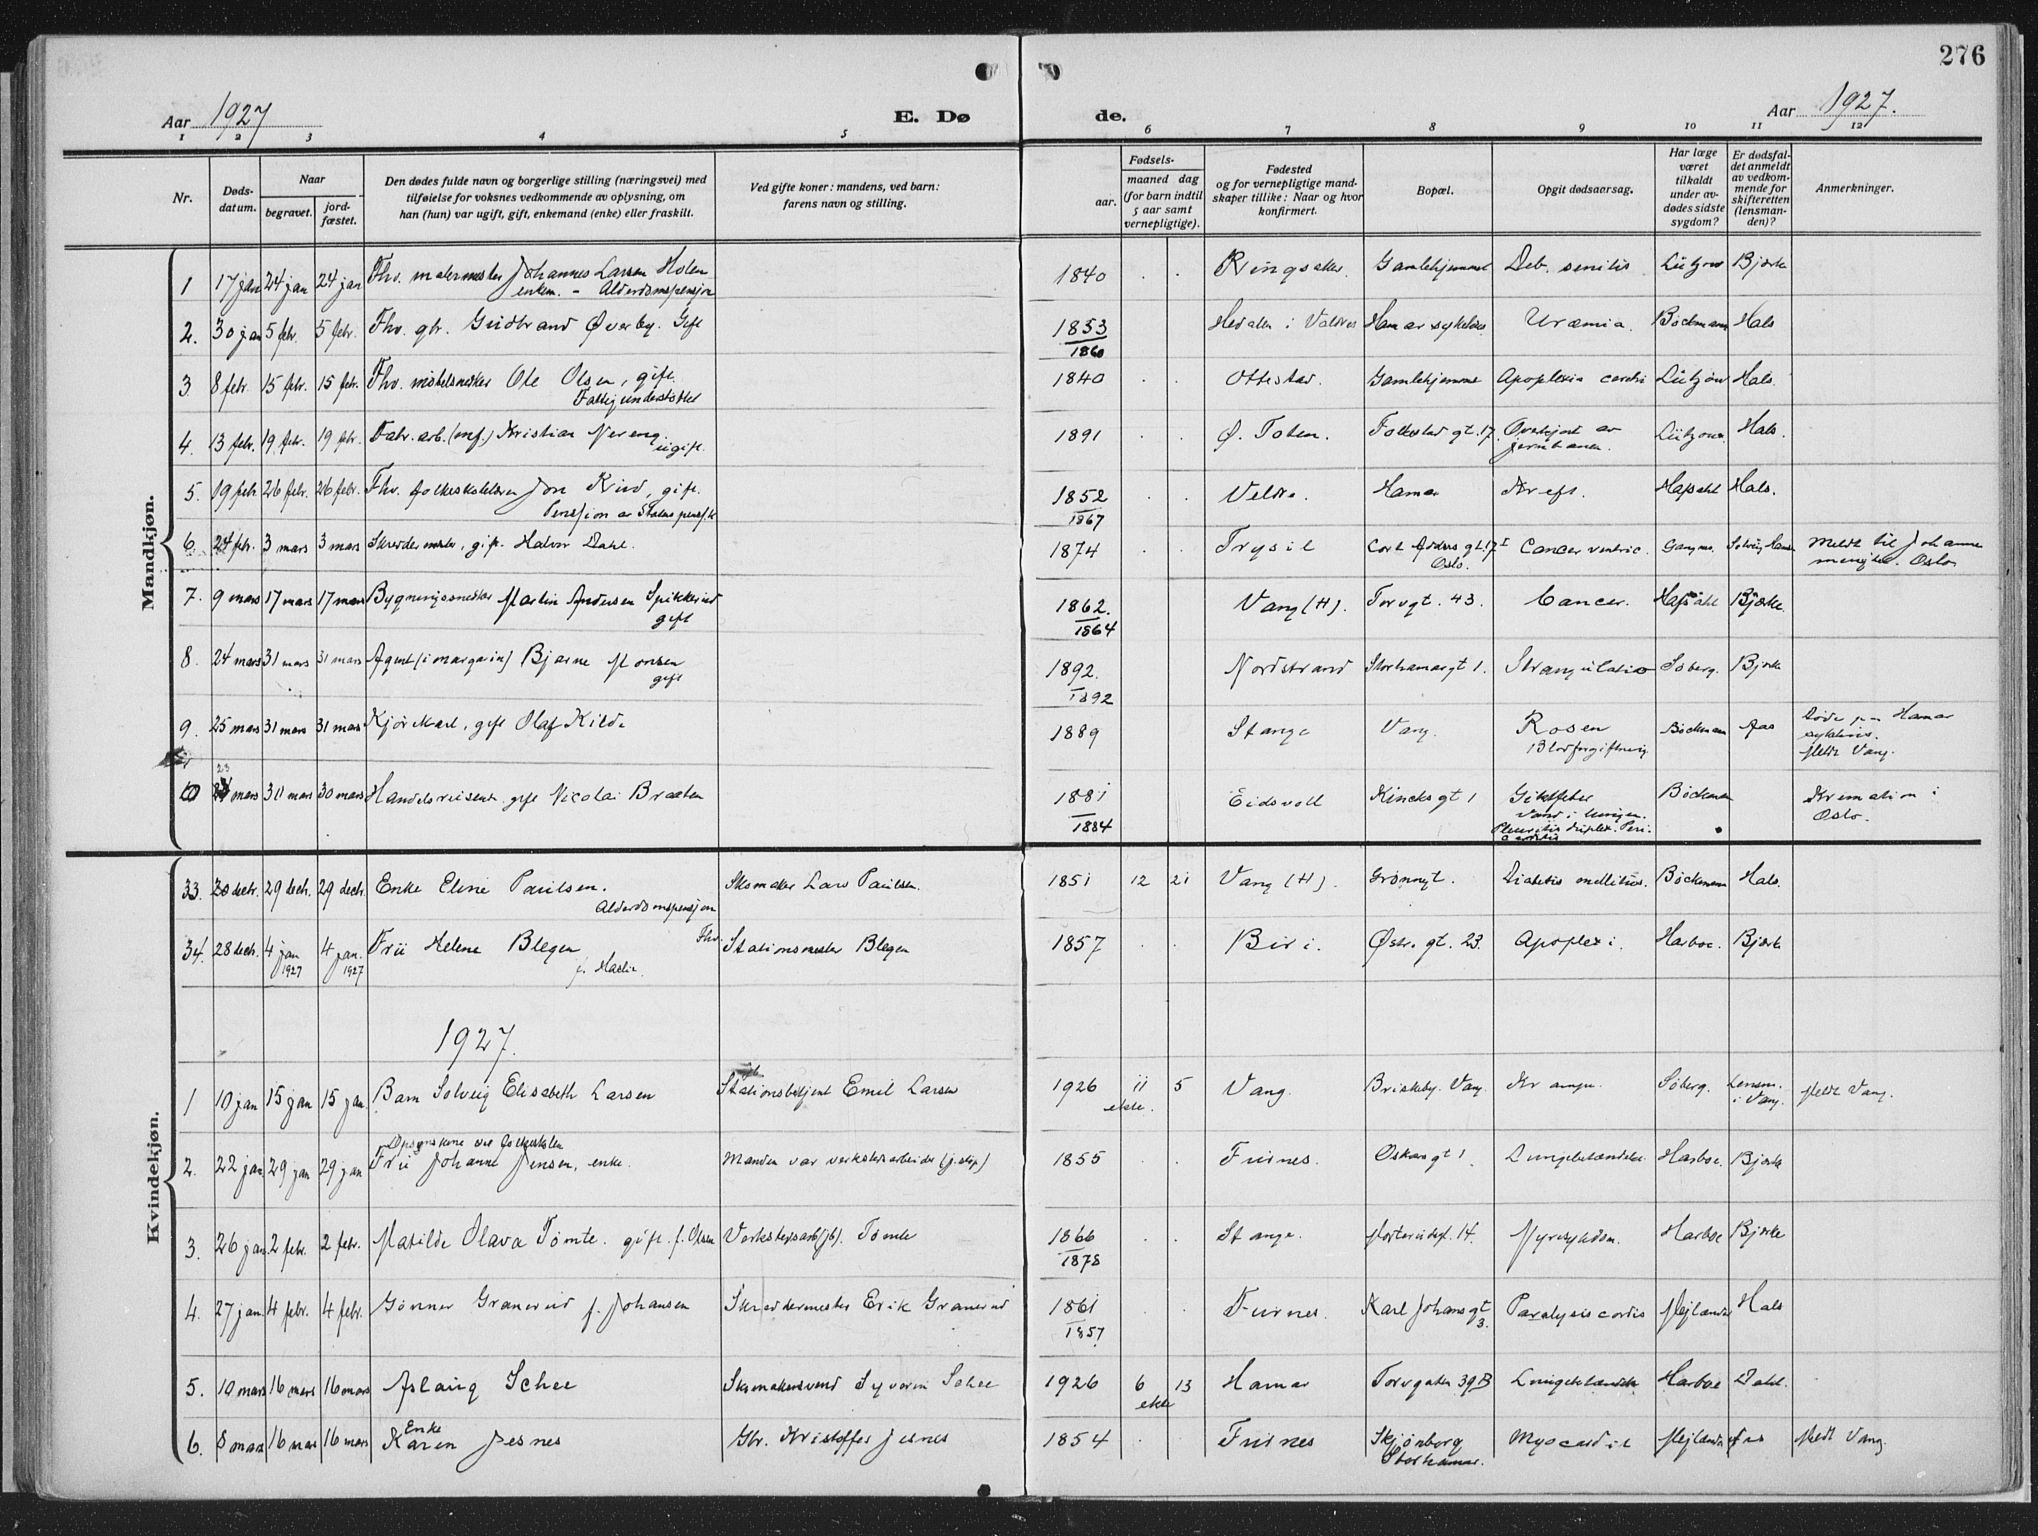 276
Aar 1927
E. Dø
de.
Aar 1927.
1 2 3 4 5 6 7 8 9 10 11 12
Nr.
Døds-
datum.
Naar
begravet.
jord-
fæstet.
Den dødes fulde navn og borgerlige stilling (næringsvei) med
tilføielse for voksnes vedkommende av oplysning, om
han (hun) var ugift, gift, enkemand (enke) eller fraskilt.
Ved gifte koner: mandens, ved barn:
farens navn og stilling.
Fødsels-
aar.
maaned dag
(for barn indtil
5 aar samt
vernepligtige).
Fødested
og for vernepligtige mand-
skaper tillike: Naar og hvor
konfirmert.
Bopæl.
Opgit dødsaarsag.
Har læge
været
tilkaldt
under av-
dødes sidste
sygdom?
Er dødsfal-
det anmeldt
av vedkom-
mende for
skifteretten
(lensman-
den)?
Anmerkninger.
Mandkjøn.
1 17 jan 24 jan 24 jan Fhv. malermester Johannes Larsen Holen 1840 Ringsaker. Gamlehjemmet Deb. senilis Lützow Bjerke
enkem. - Alderdomspensjon
2. 30 jan 5 febr. 5 febr. Fhv. gbr. Gudbrand Øverby. Gift 1853 Hedalen i Valdres Hamar sykehus Uræmia. Bøckmann Hals
1860
3 8 febr. 15 febr. 15 febr. Fhv. møbelsnekker Ole Olsen, gift. 1840 Ottestad. Gamlehjemme Apoplexia cerebri Lützow Hals.
Fattigunderstøttet
4. 13 febr. 19 febr. 19 febr. Fabr. arb. (mf.) Kristian Nereng 1891 Ø. Toten. Folkestad gt. 17. Overkjørt av Lützow Hals.
ugift. jernbanen.
5. 19 febr. 26 febr. 26 febr. Fhv. folkeskolelærer Jon Kind, gift. 1852 Veldre. Hamar Kreft. Hafsahl Hals.
Pensjon av Statens pensj.k. 1867
6. 24 febr. 3 mars 3 mars Skreddermester, gift. Halvor Dahl. 1874 Trysil Cort Adelers gt. 17 I Cancer ventric. Solveig Hansen Meldt til Johannes
Oslo. menighet. Oslo
7. 9 mars 17 mars 17 mars Bygningssnekker Martin Andersen Spikkerud 1862. Vang (H). Torvgt. 43. Cancer. Hafsahl Bjerke.
gift 1864
8. 24 mars 31 mars 31 mars Agent (i margarin) Bjarne Monsen 1892. Nordstrand Storhamargt 1. Strangulatio Søberg. Bjerke
gift 1892
9. 25 mars 31 mars 31 mars Kjørekarl, gift Olaf Kilde 1889 Stange Vang. Rosen Bøckmann Aas Døde paa Hamar
Blodforgiftning sykehus.
Meldt Vang.
10 23 mars 30 mars 30 mars Handelsreisende gift Nicolai Braaten 1881 Eidsvoll Kincks gt 1 Giktfeber Bøckmann Kremation i
1884 Vand i lungen. Oslo.
Pleuritis duplex. Peri-
carditis
Kvindekjøn.
33. 20 decbr. 29 decbr. 29 decbr. Enke Eline Paulsen. Skomaker Lars Paulsen. 1851 12 21 Vang (H). Grønnegt. Diabetis mellitus. Bøckmann Hals.
Alderdomspensjon
34. 28 decbr. 4 jan 1927 4 jan. 1927 Fru Helene Blegen Fhv. Stationsmester Blegen 1857 Biri. Østre gt. 23. Apoplexi. Harboe. Bjerke
1927.
1 10 jan 15 jan 15 jan Barn Solveig Elisabeth Larsen Stationsbetjent Emil Larsen 1926 11 5 Vang. Briskeby. Vang. Krampe. Søberg. Lensm. Meldt Vang.
ekte. i Vang.
2. 22 jan 29 jan 29 jan Fru Johanne Jensen, enke. Manden var verkstedsarbeider 1855 Furnes. Oskarsgt 1. Lungebetændelse. Harboe. Bjerke
ved folkeskolen
3. 26 jan. 2 febr. 2 febr. Matilde Olava Tømte. gift. f. Olsen Verkstedsarb (jb). Tømte 1866 Stange. 14. Nyresykdom. Harboe Bjerke
1878
4. 27 jan. 4 febr. 4 febr. Gunner Granerud f. Johansen Skreddermester Erik Granerud 1861 Furnes. Karl Johansgt 3. Paralysis cordis Mejlænder Hals
1857
5. 10 mars 16 mars 16 mars Aslaug Schee Skomakersvend Syverin Schee 1926 6 13 Hamar Torvgaten 39B Lungebetændelse Harboe Dahl.
ekte
6. 8 mars 16 mars 16 mars Enke Karen Jesnes Gbr. Kristoffer Jesnes 1854 Furnes Skjønborg Myocardit Mejlænder Aas Meldt Vang.
Storhamar.